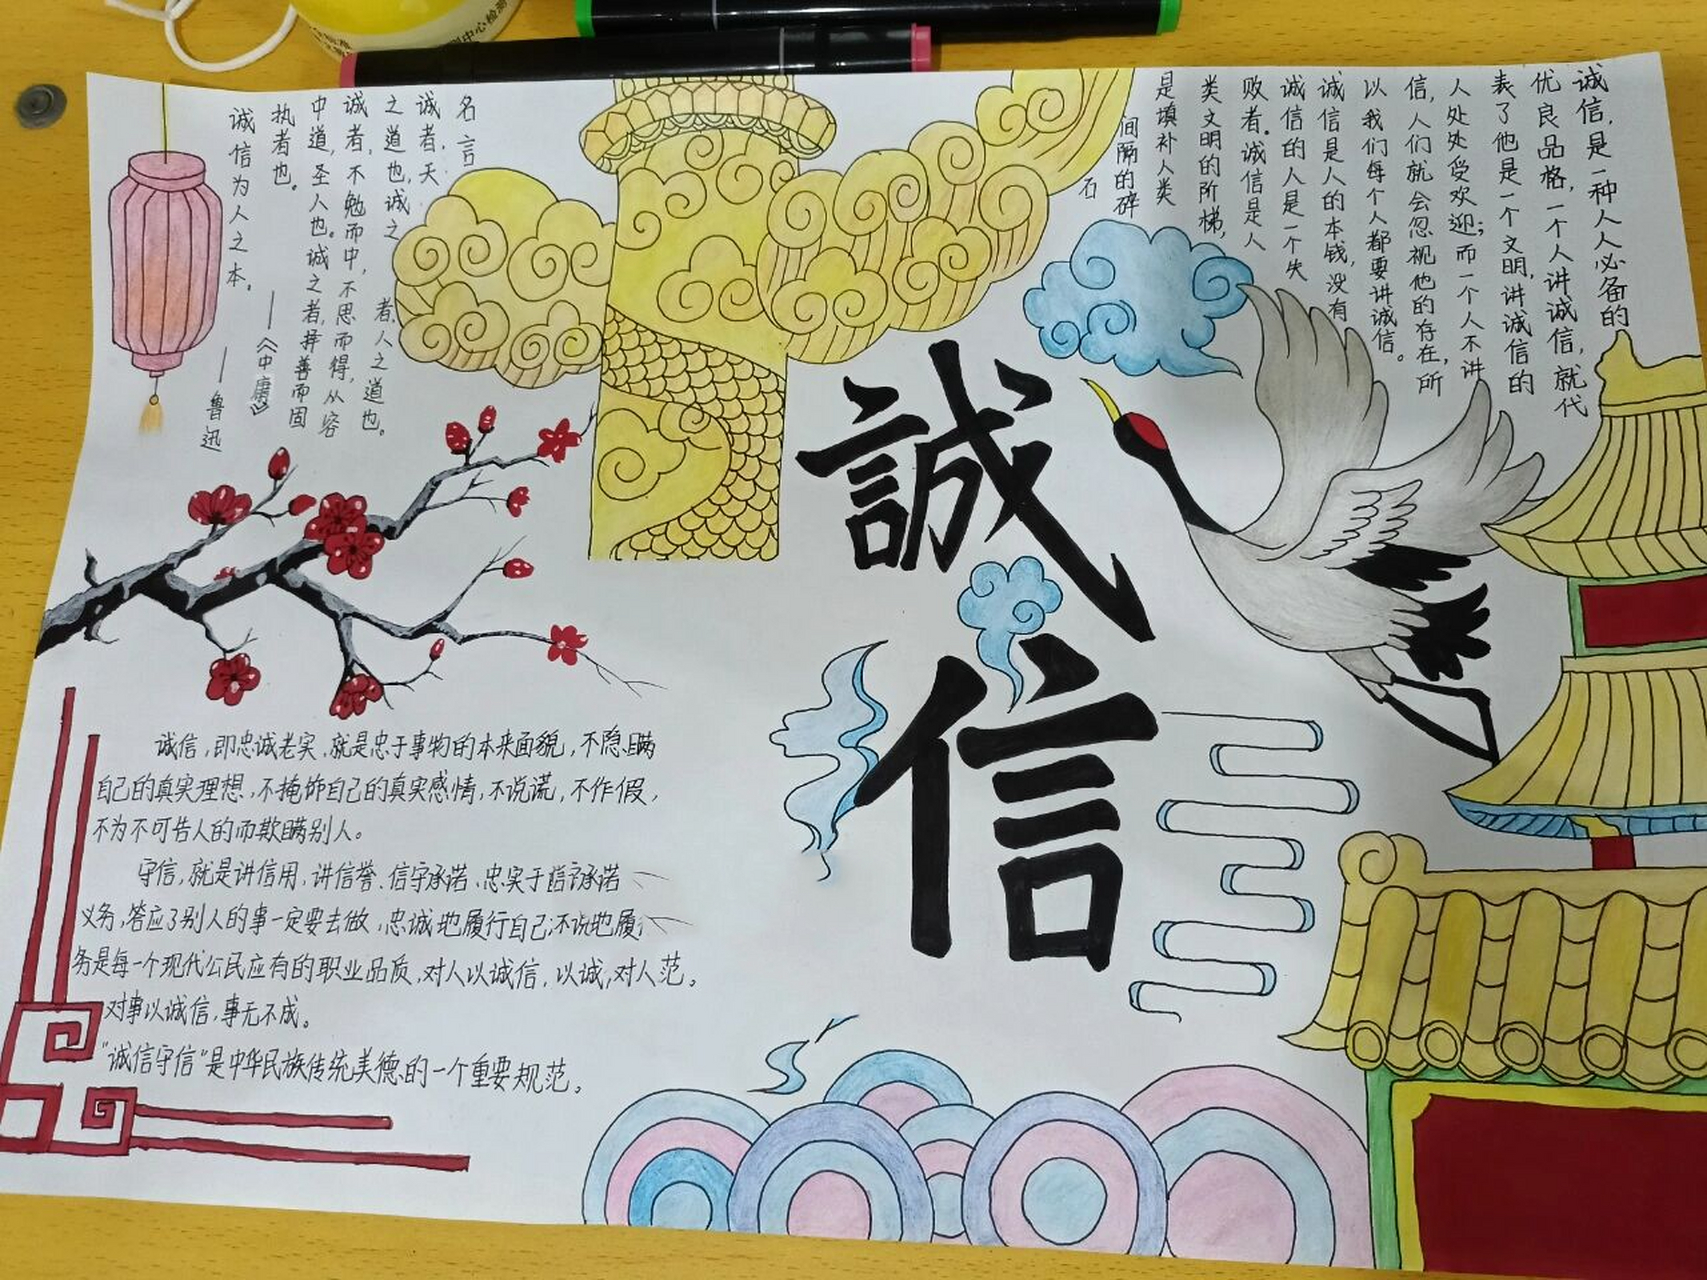 诚信,是一种人人必备的
优良品格,一个人讲诚信,就代
表了他是一个文明,讲诚信的
人处处受欢迎;而一个人不讲
信,人们就会忽视他的存在,所
以我们每个人都要讲诚信。
诚信是人的本钱,没有
诚信的人是一个失
败者。诚信是人
类文明的阶梯,
是填补人类
间隔的碎
石
誠
信
名言
诚者,天
之道也,诚之
者,人之道也。
诚者,不勉而中,不思而得,从容
中道,圣人也。诚之者,择善而固
执者也。
——《中庸》
诚信为人之本。
——鲁迅
诚信,即忠诚老实,就是忠于事物的本来面貌,不隐瞒
自己的真实理想,不掩饰自己的真实感情,不说谎,不作假,
不为不可告人的而欺瞒别人。
守信,就是讲信用,讲信誉、信守承诺、忠实于 承诺
义务,答应了别人的事一定要去做,忠诚地履行自己 地履
务是每一个现代公民应有的职业品质,对人以诚信,以诚,对人范。
对事以诚信,事无不成。
"诚信守信"是中华民族传统美德的一个重要规范。